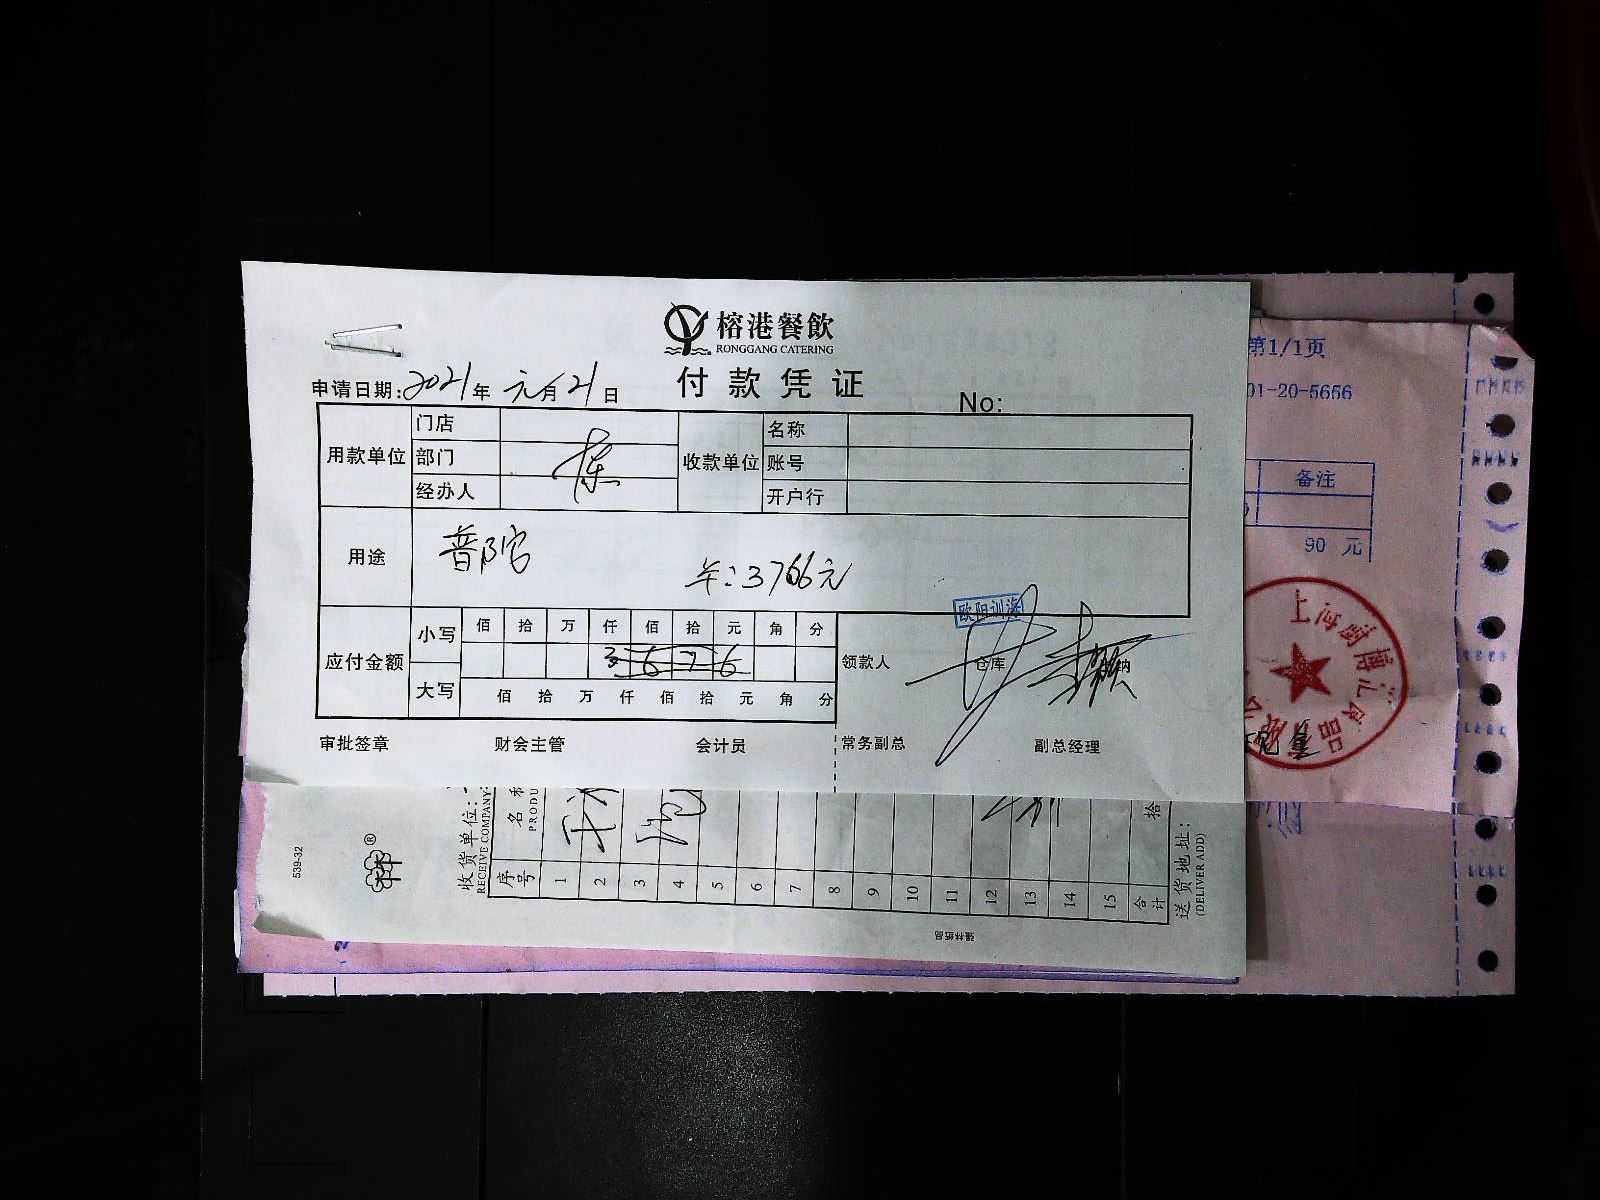 榕港餐飲
RONGGANG CATERING
付款凭证
申请日期:2021年元月21日
No:
用款单位
门店
部门
经办人
收款单位
名称
账号
开户行
用途
普陀
3766元
应付金额
小写
佰 拾 万 仟 佰 拾 元 角 分
3 6 7 6
大写
佰 拾 万 仟 佰 拾 元 角 分
领款人
仓库
审批签章
财会主管
会计员
常务副总
副总经理
第1/1页
01-20-5656
备注
90 元
539-32
收货单位:
RECEIVE COMPANY
序号
PRODU
1 2 3 4 5 6 7 8 9 10 11 12 13 14 15
合计
拾
送货地址:
(DELIVER ADD)